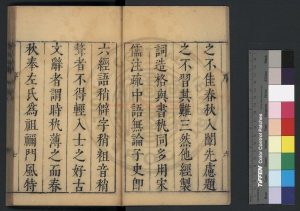 之不佳春秋入闈先慮題
之不習其難三然他經製
詞造格與書執同多用宋
儒注疏中語無論子史即
六經語稍僻字稍粗音稍
聱者不得輕入士之好古
文辭者謂時秋薄之而春
秋奉左氏為祖禰門風特
TIFFEN
Color Control Patches